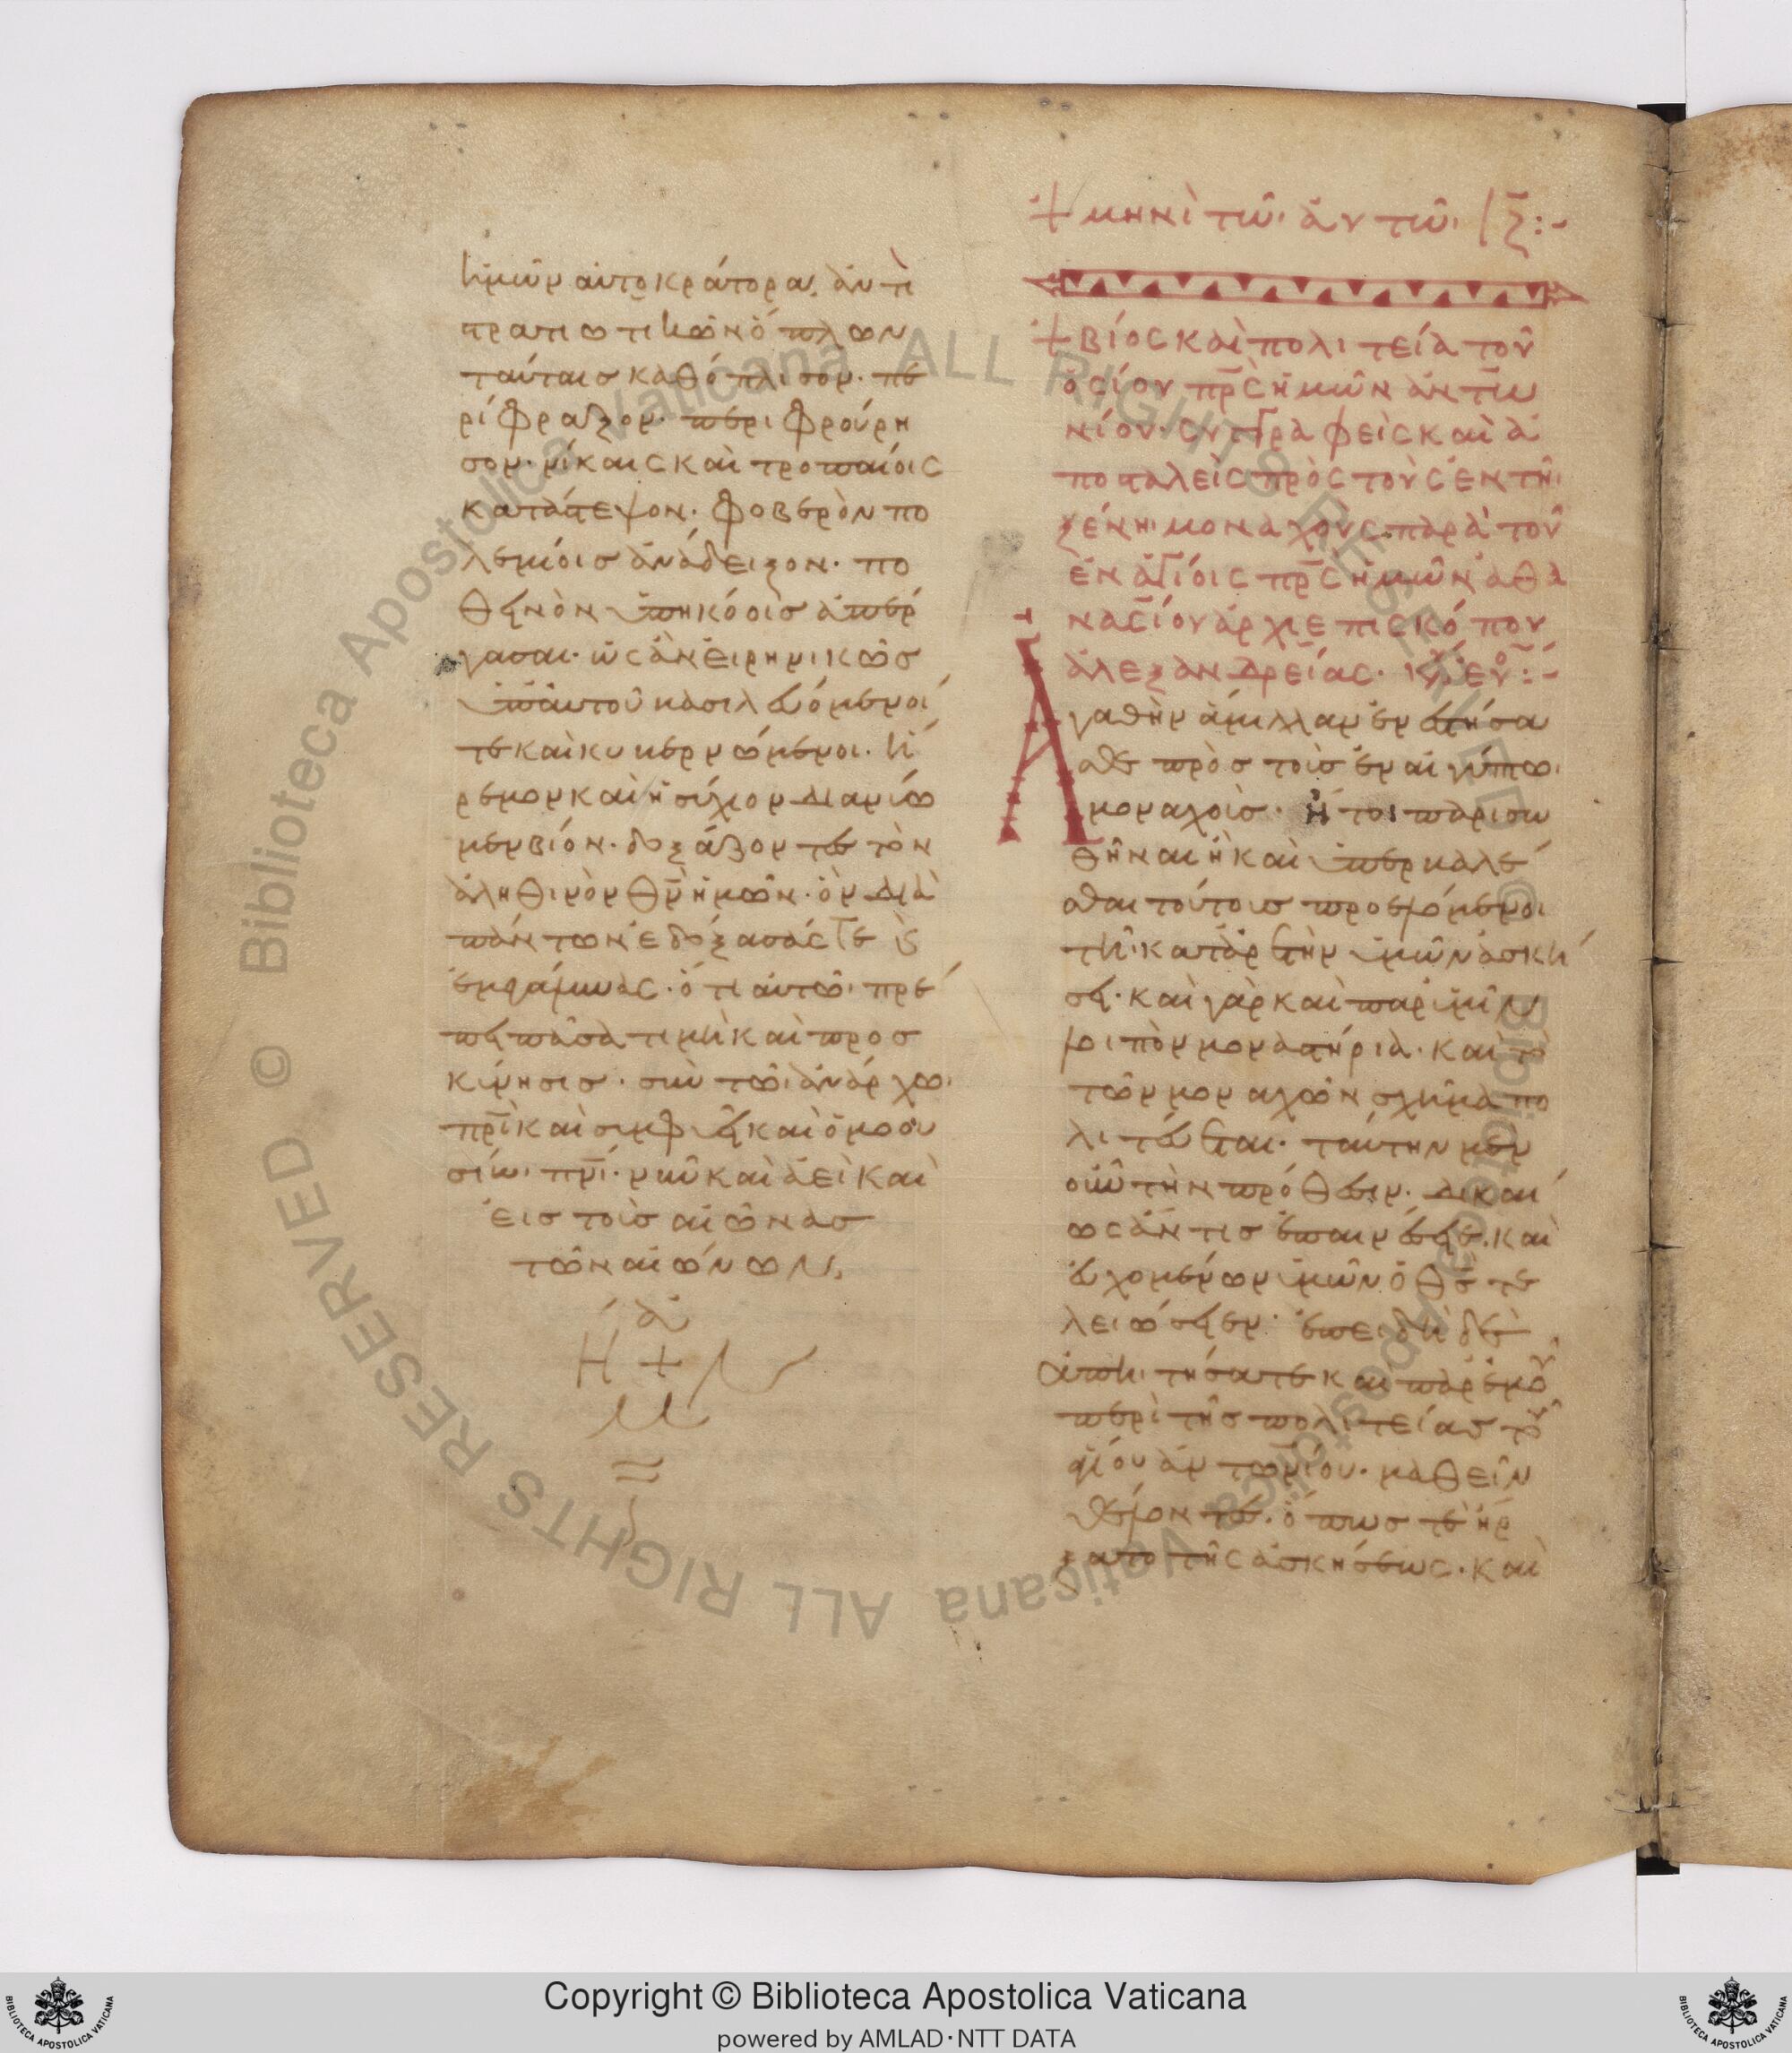 ἡμῶν αὐτοκράτορα, ἀντὶ
στρατιωτικῶν ὅπλων
ταύταις καθόπλισον· πε
ρίφραξον· περιφρούρη
σον· νίκαις καὶ τροπαίοις
κατάστεψον· φοβερὸν πο
λεμίοις ἀνάδειξον· πο
θεινὸν ὑπηκόοις ἀπέρ
γασαι· ὡς ἂν εἰρηνικῶς
ὑπ' αὐτοῦ βασιλευόμενοί
τε καὶ κυβερνώμενοι· ἤ
ρεμον καὶ ἡσύχιον διανύω
μεν βίον· δοξάζοντες τὸν
ἀληθινὸν θν ἡμῶν· ὃν διὰ
πάντων ἐδόξασάς τε ὡς
ὅτι αὐτῶ πρέ
πει πᾶσα τιμὴ καὶ προσ
κύνησις· σὺν τῶ ἀνάρχω
πρὶ καὶ συμφυεῖ καὶ ὁμοου
σίω πνι· νῦν καὶ ἀεὶ καὶ
εἰς τοὺς αἰῶνας
τῶν αἰώνων
ἀ
μ ή ν
+ μηνὶ τῶ αὐτῶ ιζ:-
+ βίος καὶ πολιτεία τοῦ
ὁσίου πρς ἡμῶν ἀντω
νίου· συγγραφεὶς καὶ ἀ
ποσταλεὶς πρὸς τοὺς ἐν τῆ
ξένη μοναχοὺς παρὰ τοῦ
ἐν ἁγίοις πρς ἡμῶν ἀθα
νασίου ἀρχιεπισκόπου
ἀλεξανδρείας· κε εὐ:-
Ἀγαθὴν ἅμιλλαν ἐνεστήσα
σθε πρὸς τοὺς ἐν αἰγύπτω
μοναχούς· ἤτοι παρισω
θῆναι ἢ καὶ ὑπερβαλέ
σθαι τούτους προελόμενοι
τῆ κατ' ἀρετὴν ὑμῶν ἀσκή
σει· καὶ γὰρ καὶ παρ' ὑμῖν
λοιπὸν μοναστήρια· καὶ τὸ
τῶν μοναχῶν σχῆμα πο
λιτεύεται· ταύτην μὲν
οὖν τὴν πρόθεσιν· δικαί
ως ἄν τις ἐπαινέσειε· καὶ
εὐχομένων ὑμῶν ὁ θς τε
λειώσειεν· ἐπειδὴ δὲ
ἀπητήσατε καὶ παρ' ἐμοῦ
περὶ τῆς πολιτείας τοῦ
ἁγίου ἀντωνίου· μαθεῖν
θέλοντες· ὅπως τε ἤρ
ξατο τῆς ἀσκήσεως· καὶ
Copyright © Biblioteca Apostolica Vaticana
powered by AMLAD·NTT DATA
© Biblioteca Apostolica Vaticana ALL RIGHTS RESERVED
© Biblioteca Apostolica Vaticana ALL RIGHTS RESERVED
BIBLIOTECA APOSTOLICA VATICANA
BIBLIOTECA APOSTOLICA VATICANA